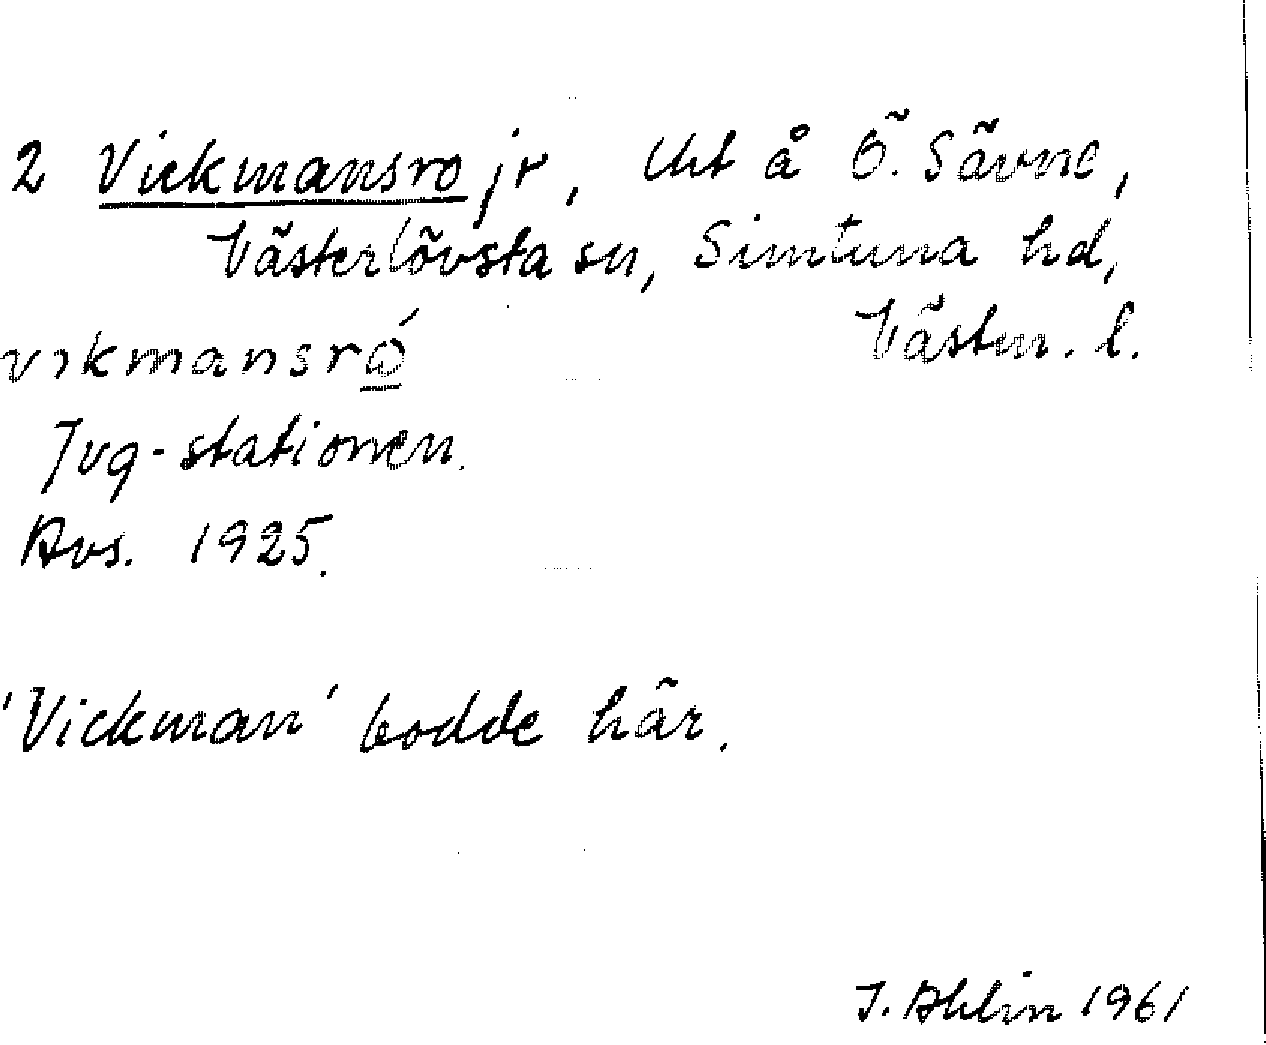 2 Vickmansro jr, lht å Ö. Sävne,
Västerlövsta sn, Simtuna hd,
Västm. l.
vıkmansrò̲́
Jvg-stationen.
Avs. 1925.
'Vickman' bodde här.
J. Ahlin 1961